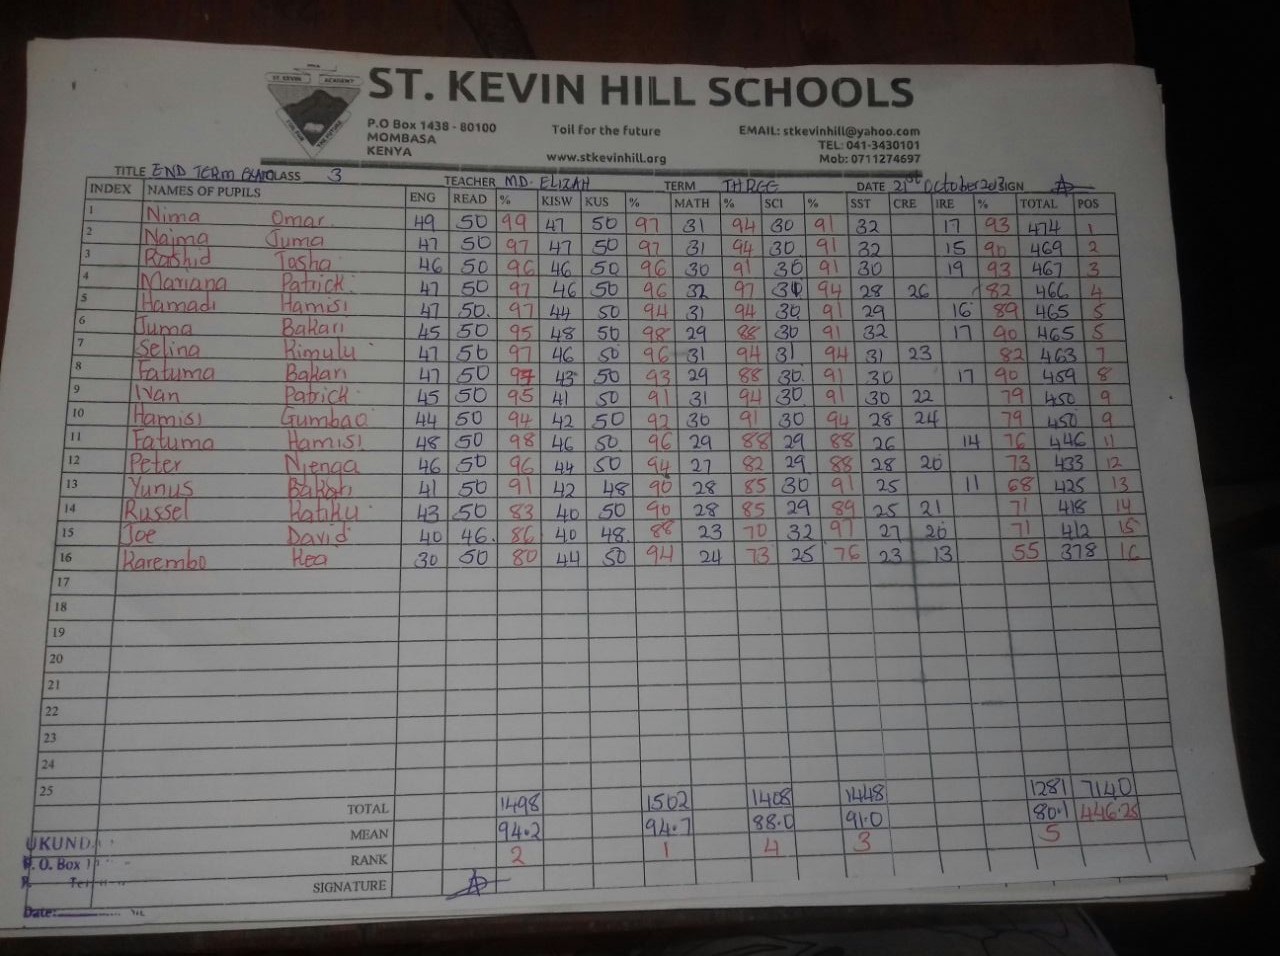 ST. KEVIN HILL SCHOOLS
ST. KEVIN ACADEMY
P.O Box 1438 - 80100 Toil for the future EMAIL: stkevinhill@yahoo.com
MOMBASA TEL: 041-3430101
KENYA www.stkevinhill.org Mob: 0711274697
TITLE END TERM EXAM CLASS 3 TEACHER MD. ELIZAH TERM THREE DATE 21st October 2013 SIGN
INDEX NAMES OF PUPILS ENG READ % KISW KUS % MATH % SCI % SST CRE IRE % TOTAL POS
1 Nima Omar 49 50 99 47 50 97 31 94 30 91 32 17 93 474 1
2 Najma Juma 47 50 97 47 50 97 31 94 30 91 32 15 90 469 2
3 Rashid Tasha 46 50 96 46 50 96 30 91 30 91 30 19 93 467 3
4 Mariana Patrick 47 50 97 46 50 96 32 97 94 28 26 82 466 4
5 Hamadi Hamisi 47 50. 97 44 50 94 31 94 30 91 29 16 89 465 5
6 Juma Bakari 45 50 95 48 50 98 29 88 30 91 32 17 90 465 5
7 Selina Kimulu 47 50 97 46 50 96 31 94 31 94 31 23 82 463 7
8 Fatuma Bakari 47 50 97 43 50 93 29 88 30. 91 30 17 90 459 8
9 Ivan Patrick 45 50 95 41 50 91 31 94 30 91 30 22 79 450 9
10 Hamisi Gumbao 44 50 94 42 50 92 30 91 30 94 28 24 79 450 9
11 Fatuma Hamisi 48 50 98 46 50 96 29 88 29 88 26 14 76 446 11
12 Peter Njenga 46 50 96 44 50 94 27 82 29 88 28 20 73 433 12
13 Yunus Bakari 41 50 91 42 48 90 28 85 30 91 25 11 68 425 13
14 Russel Katiku 43 50 83 40 50 90 28 85 29 89 25 21 71 418 14
15 Joe David 40 46. 86 40 48. 88 23 70 32 97 27 20 71 412 15
16 Karembo Kea 30 50 80 44 50 94 24 73 25 76 23 13 55 378 16
17
18
19
20
21
22
23
24
25
TOTAL 1498 1502 1408 1448 1281 7140
MEAN 94.2 94.7 88.0 91.0 80.1 446.25
RANK 2 1 4 3 5
SIGNATURE
UKUND
P. O. Box
Date: